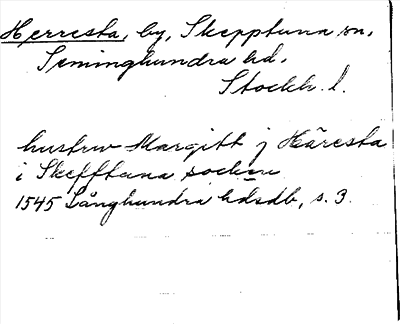 Herresta, by, Skepptuna sn,
Seminghundra hd.
Stockh. l.
hustrw Margitt j Häresta
i Skefftuna sochnn
1545 Långhundra hdsdb, s. 3.